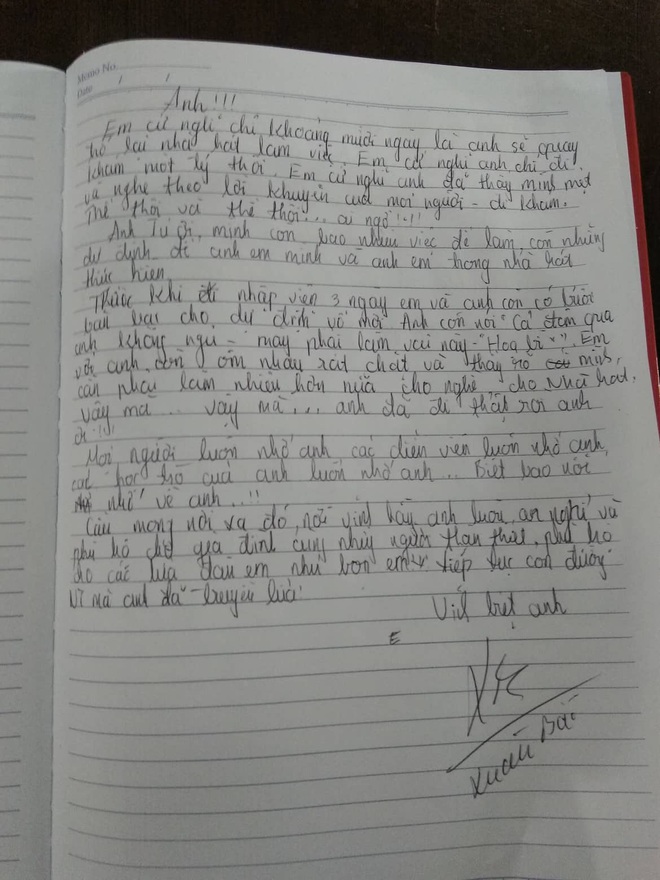 Memo No.
Date / /
Anh!!!
Em cứ nghĩ chỉ khoảng mười ngày là anh sẽ quay
trở lại nhà hát làm việc. Em cứ nghĩ anh chỉ đi
khám một lý thôi. Em cứ nghĩ anh đã thấy mình mệt
và nghe theo lời khuyên của mọi người - đi khám.
Thế thôi và thế thôi... ai ngờ !!!
Anh Tú ơi, mình còn bao nhiêu việc để làm, còn những
dự định để anh em mình và anh em trong nhà hát
thực hiện.
Trước khi đi nhập viện 3 ngày em và anh còn có buổi
bàn bạc cho dự định vở mới. Anh còn nói "Cả đêm qua
anh không ngủ - mày phải làm vai này - "Hoạ sĩ". Em
với anh còn ôm nhau rất chặt và thấy rõ mình
cần phải làm nhiều hơn nữa cho nghề, cho Nhà hát.
Vậy mà... vậy mà... anh đã đi thật rồi anh
ơi !!!
Mọi người luôn nhớ anh các diễn viên luôn nhớ anh,
các học trò của anh luôn nhớ anh... Biết bao nỗi
nhớ về anh..!!
Cầu mong nơi xa đó, nơi vĩnh hằng anh luôn an nghỉ và
phù hộ cho gia đình cùng những người thân thật, phù hộ
cho các lứa đàn em như bọn em tiếp tục con đường
mà anh đã truyền lửa!
Vĩnh biệt anh
E
Xuân Bắc